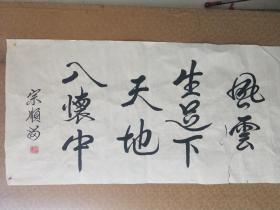 風雲
生足下
天地
入懷中
宗順